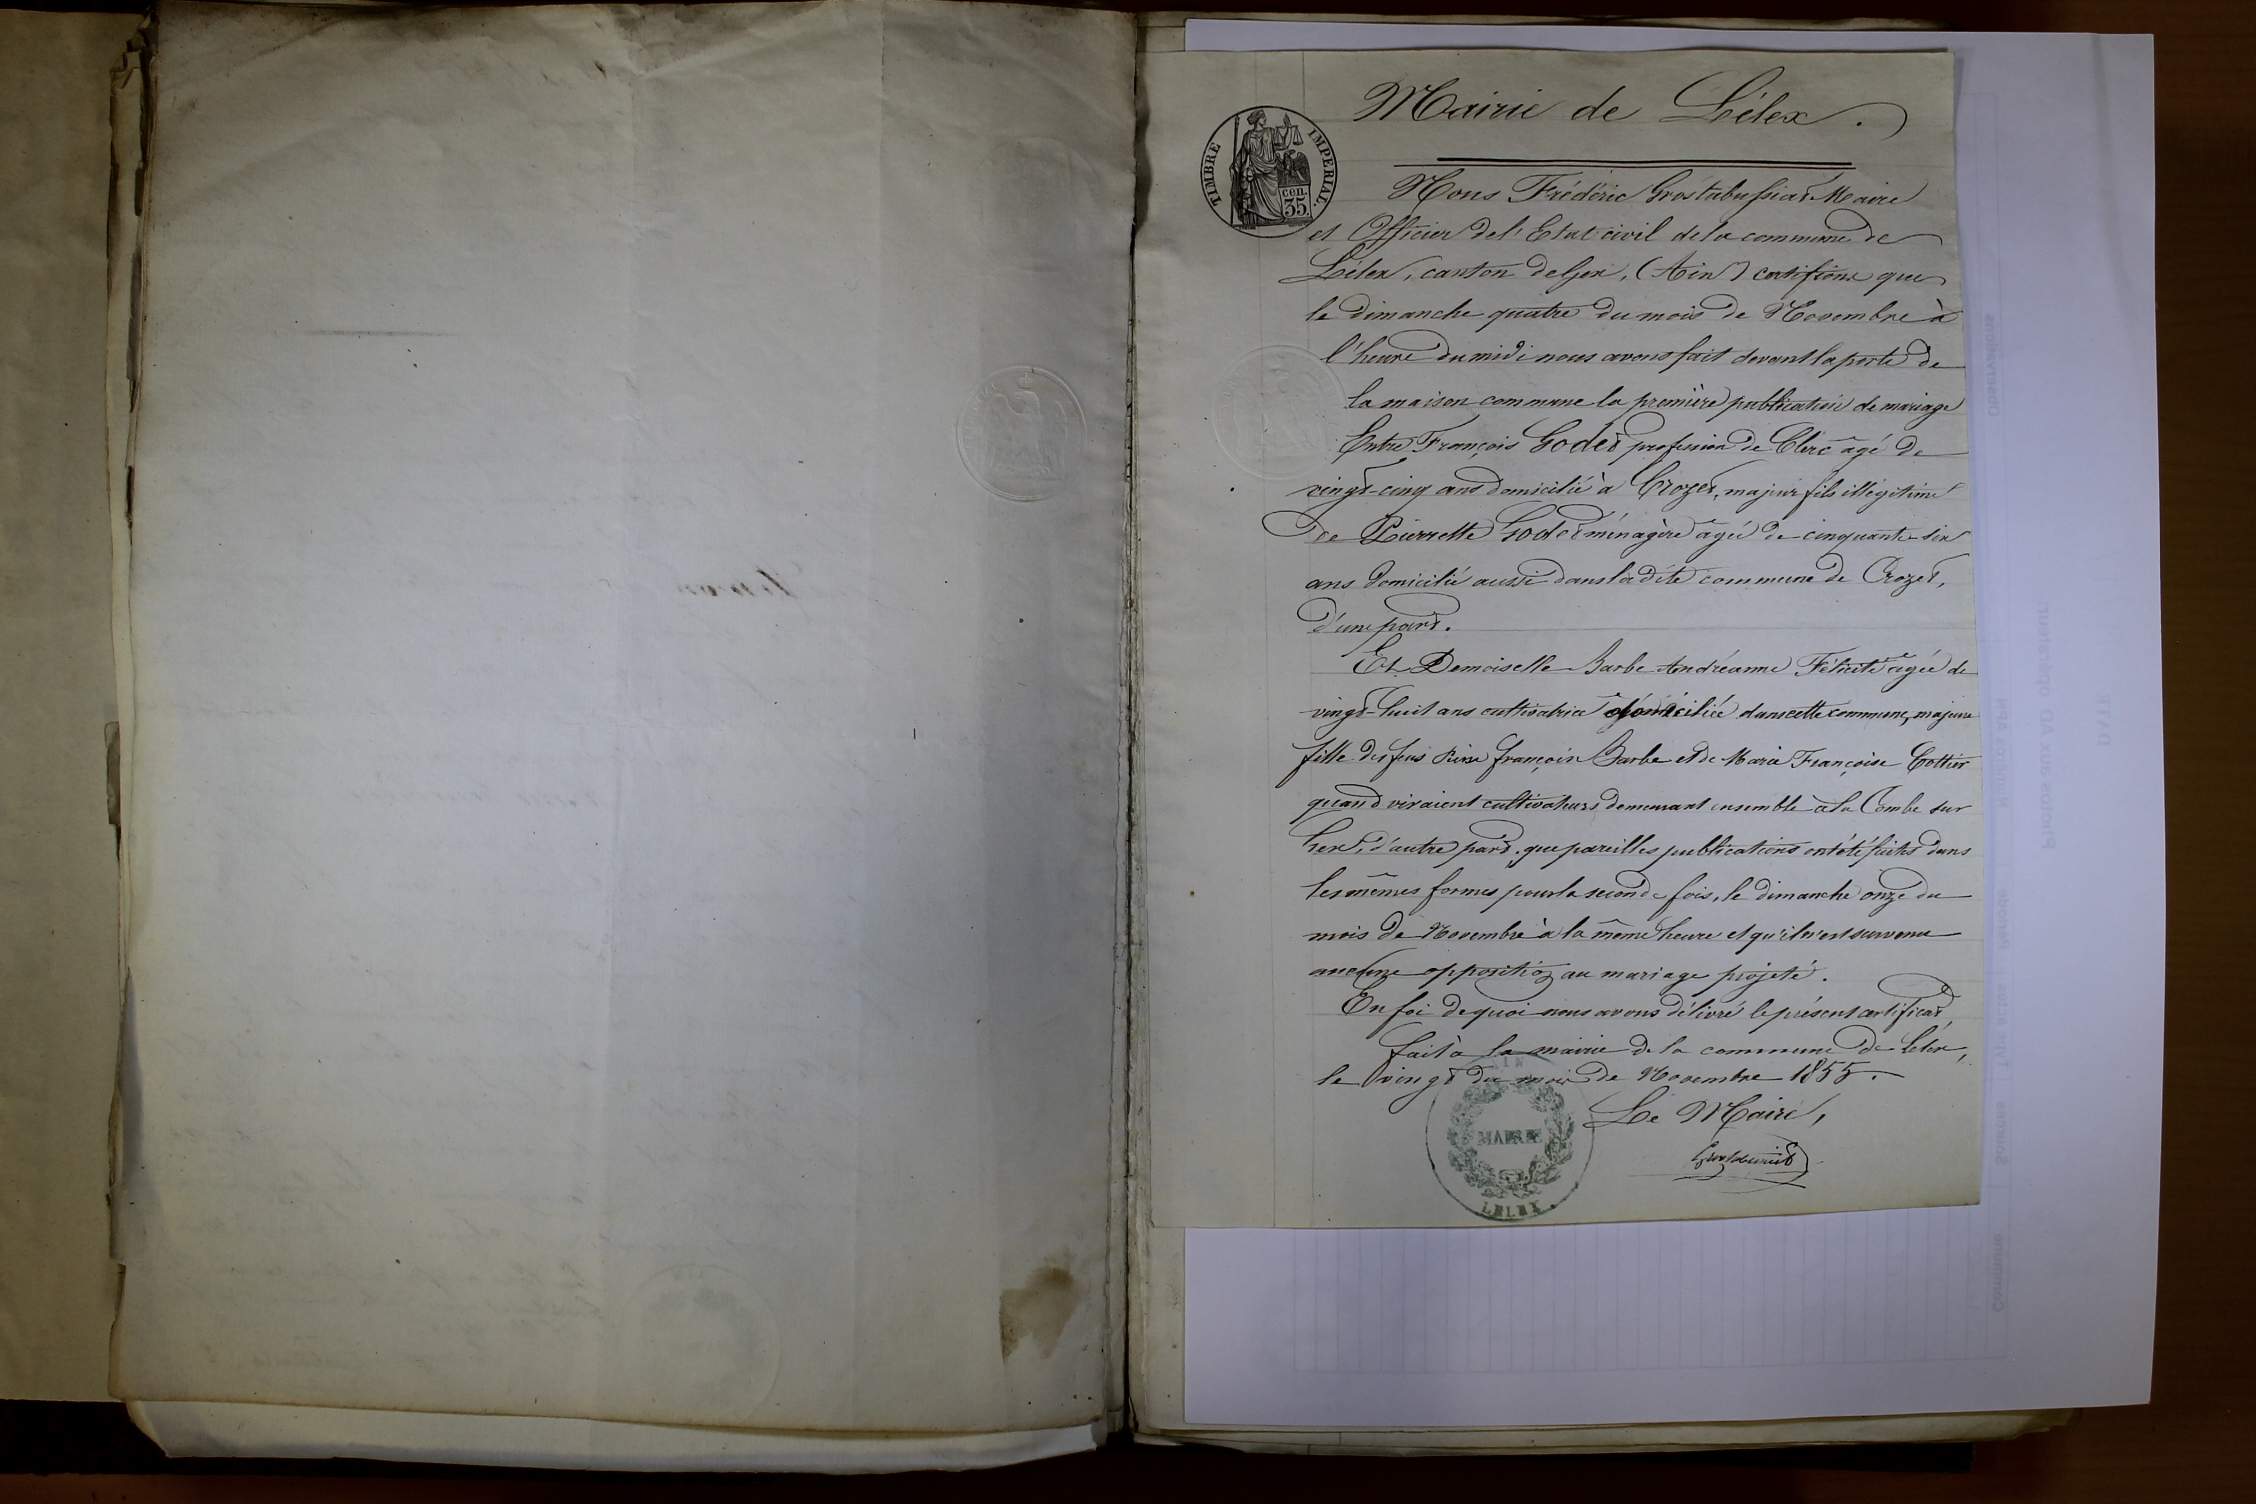 Mairie de Lélex.
TIMBRE IMPERIAL.
cen.
35.
Nous Frédéric Grostabussiat Maire
et Officier de l'Etat civil de la commune de
Lélex, canton de Gex, (Ain) certifions que
le dimanche quatre du mois de Novembre à
l'heure du midi nous avons fait devant la porte de
la maison commune la première publication de mariage
Entre François Godet profession de Clerc âgé de
vingt-cinq ans domicilié à Crozet, majeur fils illégitime
de Pierrette Godet ménagère âgée de cinquante-six
ans domicilié aussi dans la dite commune de Crozet,
d'une part.
Et Demoiselle Barbe Andréanne Félicité âgée de
vingt-huit ans cultivatrice domiciliée dans cette commune, majeure
fille des feus Rive françois Barbe et de Marie Françoise Cottier
quand vivaient cultivateurs demeurant ensemble à la Combe sur
Gex, d'autre part. que pareilles publications ont été faites dans
les mêmes formes pour la seconde fois, le dimanche onze du
mois de Novembre à la même heure et qu'il n'est survenu
aucune opposition au mariage projeté.
En foi de quoi nous avons délivré le présent certificat,
fait à la mairie de la commune de Lélex,
le vingt du mois de Novembre 1855.
Le Maire,
MAIRIE
LELEX.